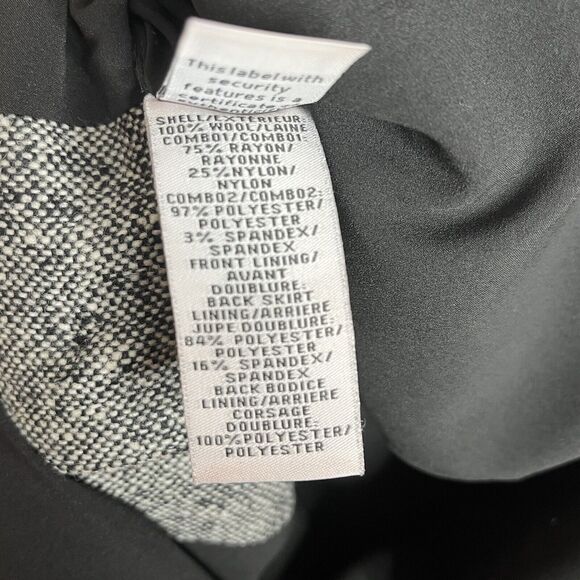 This label with
security
features is a
certificate
SHELL/EXTERIEUR:
100% WOOL/LAINE
COMBO1/COMBO1:
75% RAYON/
RAYONNE
25% NYLON/
NYLON
COMBO2/COMBO2:
97% POLYESTER/
POLYESTER
3% SPANDEX/
SPANDEX
FRONT LINING/
AVANT
DOUBLURE:
BACK SKIRT
LINING/ARRIERE
JUPE DOUBLURE:
84% POLYESTER/
POLYESTER
16% SPANDEX/
SPANDEX
BACK BODICE
LINING/ARRIERE
CORSAGE
DOUBLURE:
100%POLYESTER/
POLYESTER